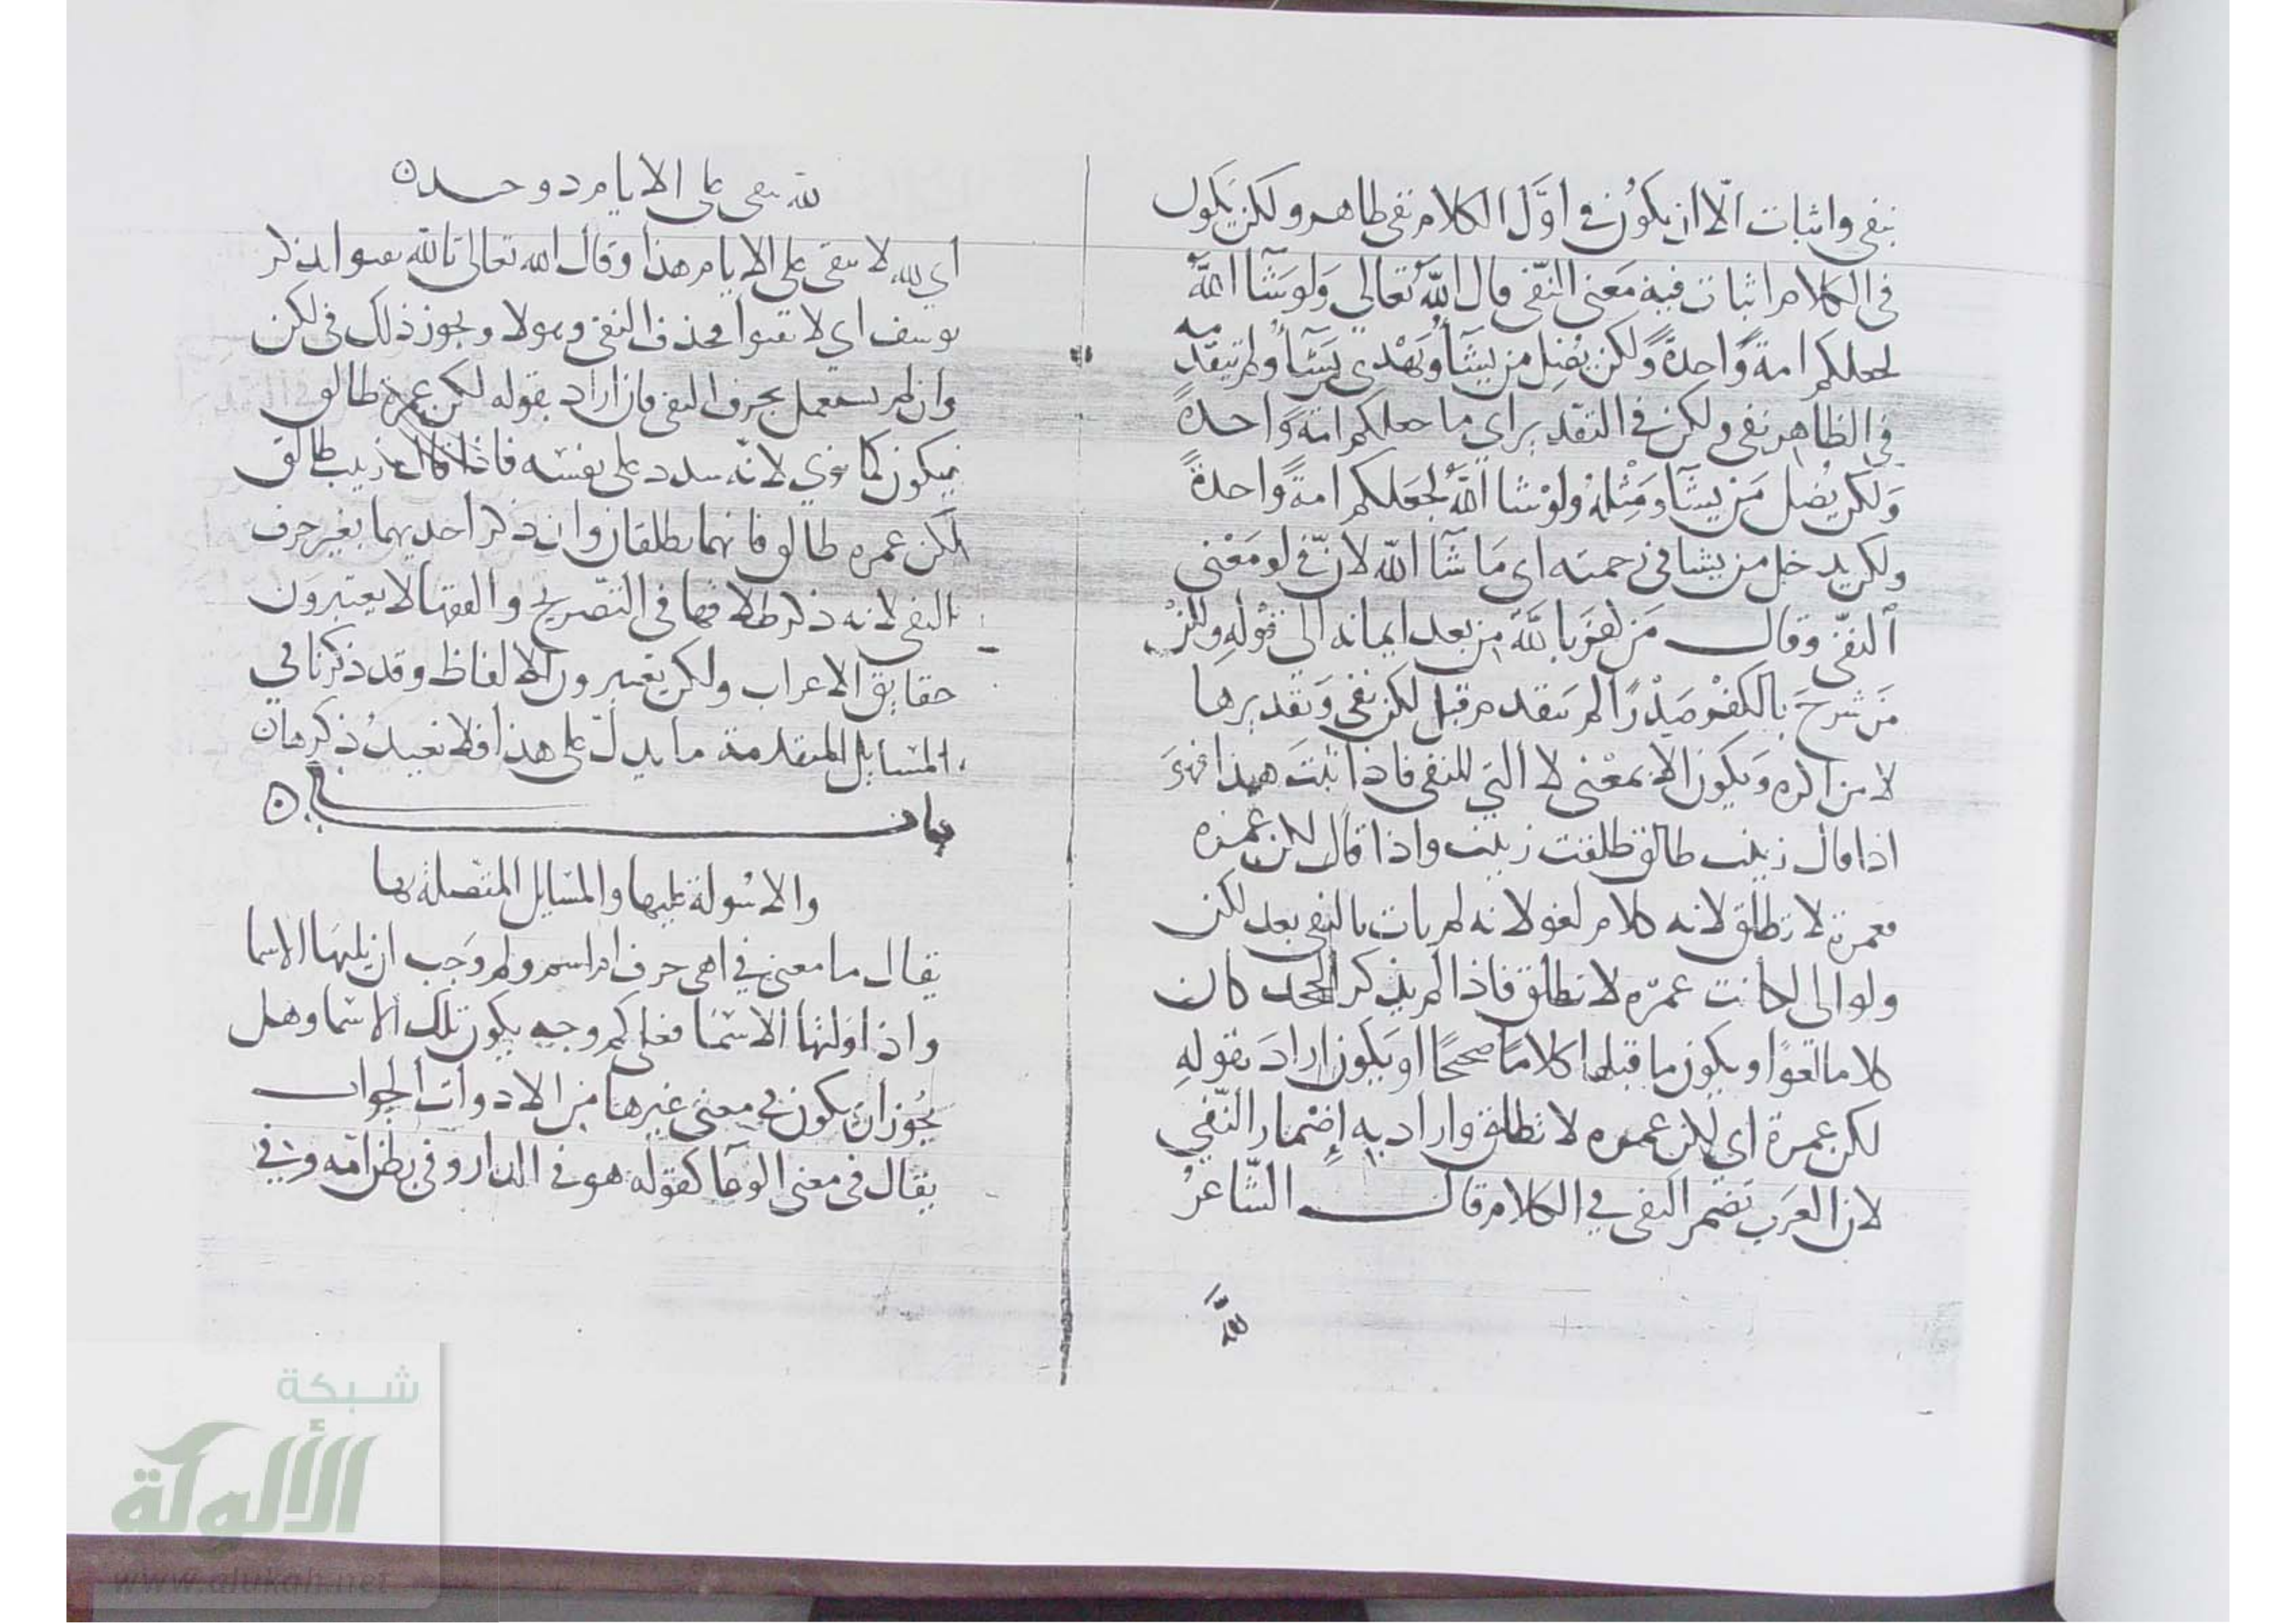 بنفى واثبات الّا ان يكوُن في اوَّل الكلام نفى ظاهر ولكن يكول
فى الكلام اثبات فيه مَعنى النّفى قال اللّه تعالى وَلو شَآا اللّهُ
لجعلكم امة وَّاحدةً وَّلكن يُضِل من يشَآ وَيَهْدى مَن يَشَآ وَلم يتقدمه
فى الظاهر نفى ولكن فى التقدير اي ما جعلكم امة وَّاحدةً
وَلكن يُضل مَن يشَآ وَمِثْلهُ ولوْ شا اللّهُ لجعَلكم امةً وَّاحدةً
ولكن يدخل من يشا فى رحمته اى مَا شَآا اللّه لانّ فى لو مَعْنى
النفى وقال مَن كفرَ باللّهِ من بعد ايمانه الى قوْلهِ ولكن
مَن شرحَ بالكفر صَدْرًا لم يتقدم قبل لكن نفى وَتقديرها
لا من اكره وَيكون الا بمعْنى لا التي للنفى فاذا ثبتَ هذا فهوَ
اذا قال زينب طالق طلقت زينب واذا قال لكن عمره
فعمرة لا تطلق لانه كلام لغو لانه لم يات بالنفى بعد لكن
ولو اى لكانت عمرَه لا تطلق فاذا لم يذكر الجحد كان
كلاما لغوًا ويكون ما قبلها كلامًا صحيحًا او يكون ارادَ بقولهِ
لكن عمرة اي لكن عمره لا تطلق واراد به إضْمار النّفي
لان العَرَب تضمر النفى في الكلام قال الشّاعرُ
لله يبقى على الايام ذو حيده
اي لله لا يبقى على الايام هذا وقال الله تعالى تالله تفتوا تذكر
يوسف اي لا تفتوا فحذف النفى وهو لا ويجوز ذلك فى لكن
وان لم يستعمل بحرف النفى فان اراد بقوله لكن عمرة طالق
فيكون كما نوي لانه شدد على نفسه فاذا قال زينب طالق
لكن عمره طالق فانهما يطلقان وان ذكر احديهما بغير حرف
النفى لانه ذكر طلاقها فى التصريح والفقها لا يعتبرون
حقايق الاعراب ولكن يعتبرون الالفاظ وقد ذكرنا في
المسايل المتقدمة ما يدلّ على هذا فلا نعيدُ ذكرها
باب في
والاسُولة عليها والمسايل المتصلة بها
يقال ما معنى في اهى حرف ام اسم ولم وَجب ان يليهَا الاسما
واذا وَلتها الاسْمَا فعلى كم وجه يكون تلك الاسْما وهل
يجُوز ان يكون في معنى غيرها من الادوات الجواب
يقال فى معنى الوعَآ كقوله هو فى الدار وفى بطن امّه وفي
شبكة
الألوكة
www.alukah.net